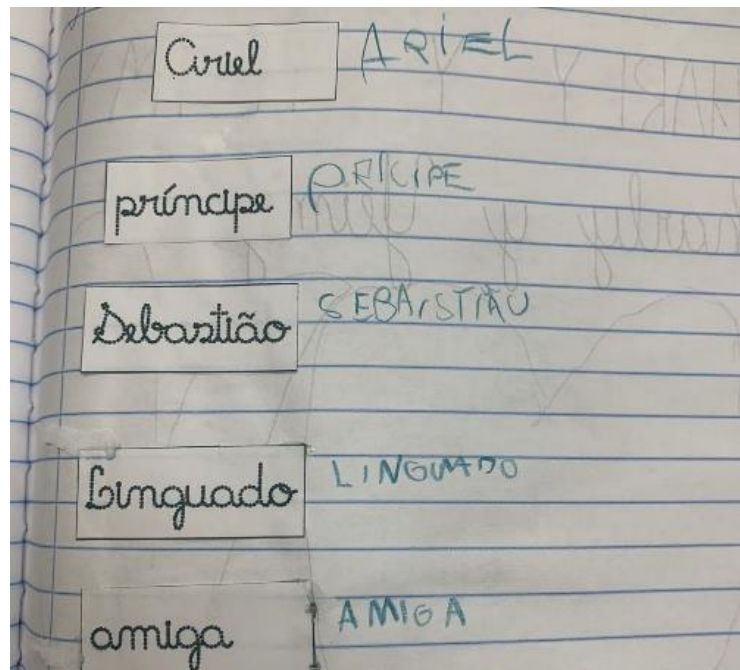 Ariel ARIEL
príncipe PRICIPE
Sebastião SEBAISTIÃU
Linguado LINGUADO
amiga AMIGA